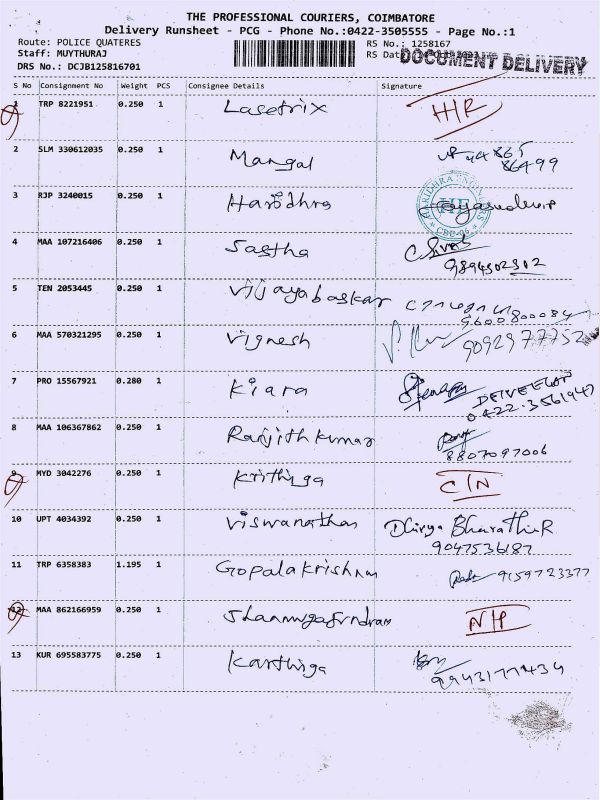 THE PROFESSIONAL COURIERS, COIMBATORE
Delivery Runsheet - PCG - Phone No.:0422-3505555 - Page No.:1
Route: POLICE QUATERES RS No.: 1258167
Staff: MUYTHURAJ RS Dat DOCUMENT DELIVERY
DRS No.: DCJB125816701
S No Consignment No Weight PCS Consignee Details Signature
1 TRP 8221951 0.250 1 Lasetrix H/R
2 SLM 330612035 0.250 1 Mangal
86499
3 RJP 3240015 0.250 1 Haridhra HE
CBE-06
4 MAA 107216406 0.250 1 Sastha
9894502302
5 TEN 2053445 0.250 1 Vijayabaskar
9600800084
6 MAA 570321295 0.250 1 Vignesh 9092977752
7 PRO 15567921 0.280 1 Kiara
0422-3561947
8 MAA 106367862 0.250 1 Ranjith kumar
8807097006
9 MYD 3042276 0.250 1 Krithiga C/N
10 UPT 4034392 0.250 1 Viswanathan Dhivya Bharathi R
9047536187
11 TRP 6358383 1.195 1 Gopalakrishnan 9159723377
12 MAA 862166959 0.250 1 N/P
13 KUR 695583775 0.250 1 Karthiga
9943177434